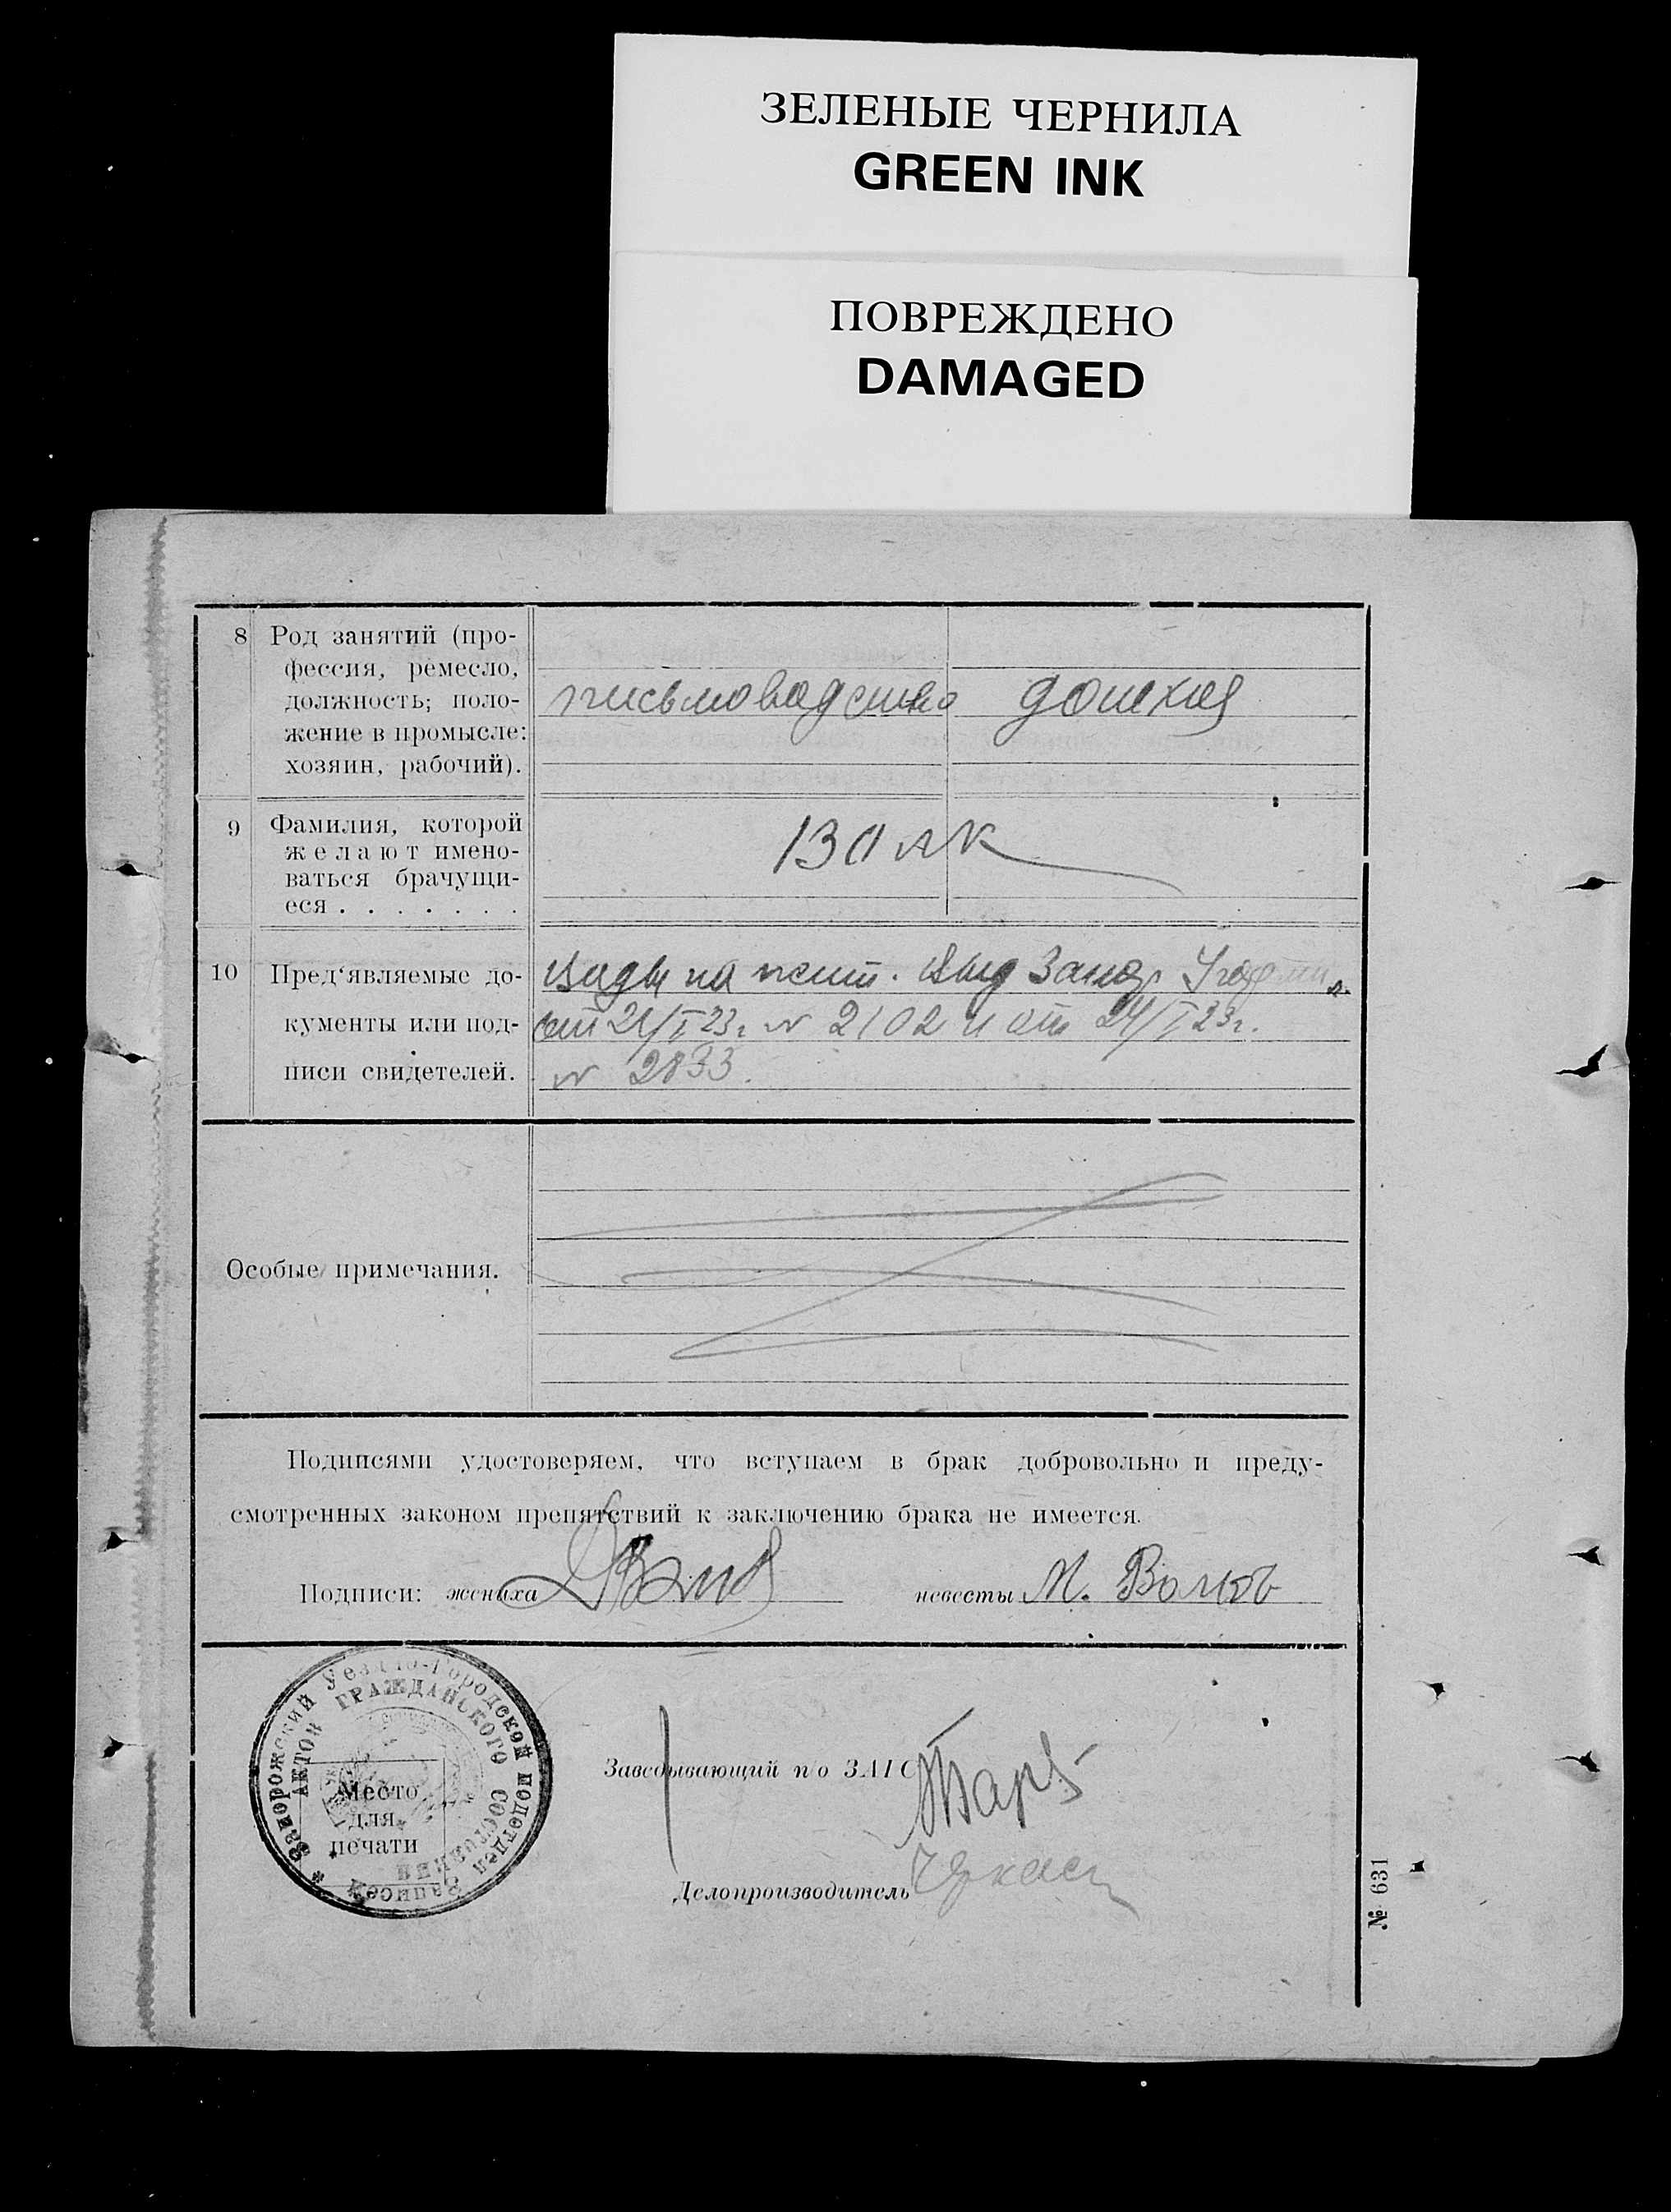 ЗЕЛЕНЫЕ ЧЕРНИЛА
GREEN INK
ПОВРЕЖДЕНО
DAMAGED
8 Род занятий (про-
фессия, ремесло,
должность; поло-
жение в промысле:
хозяин, рабочий).
письмоводство
9 Фамилия, которой
желают имено-
ваться брачущи-
еся . . . . . . .
10 Пред‘являемые до-
кументы или под-
писи свидетелей.
Виды на жит. выд Запор
от 21/I 23г. № 2102 и от 24/I 23г.
№ 2833.
Особые примечания.
Подписями удостоверяем, что вступаем в брак добровольно и преду-
смотренных законом препятствий к заключению брака не имеется.
Подписи: жениха
невесты М.
Запорожский Уездно-Городской подотдел Записей
АКТОВ ГРАЖДАНСКОГО СОСТОЯНИЯ
Место
для
печати
Заведывающий п/о ЗАГС
Делопроизводитель
№ 631